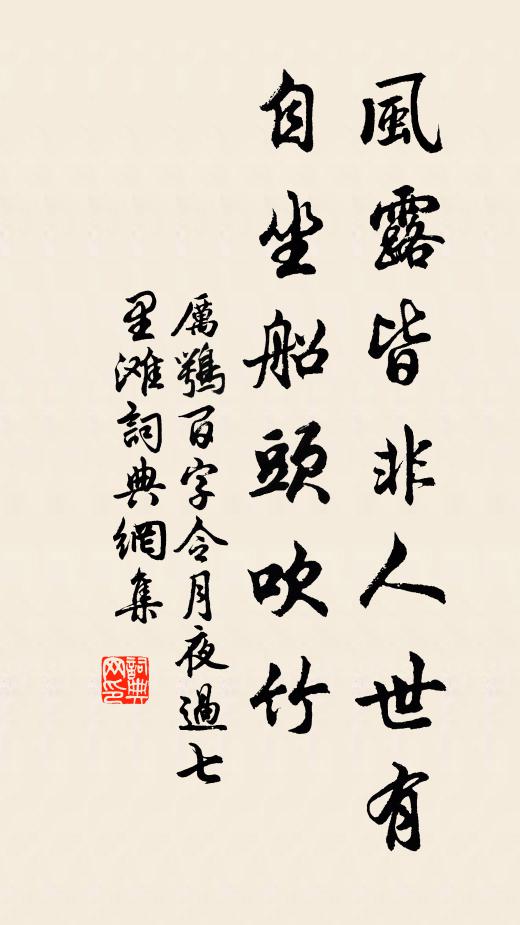 風露皆非人世有
自坐船頭吹竹
厲鶚百字令月夜過七
里灘詞典網集
詞典网印